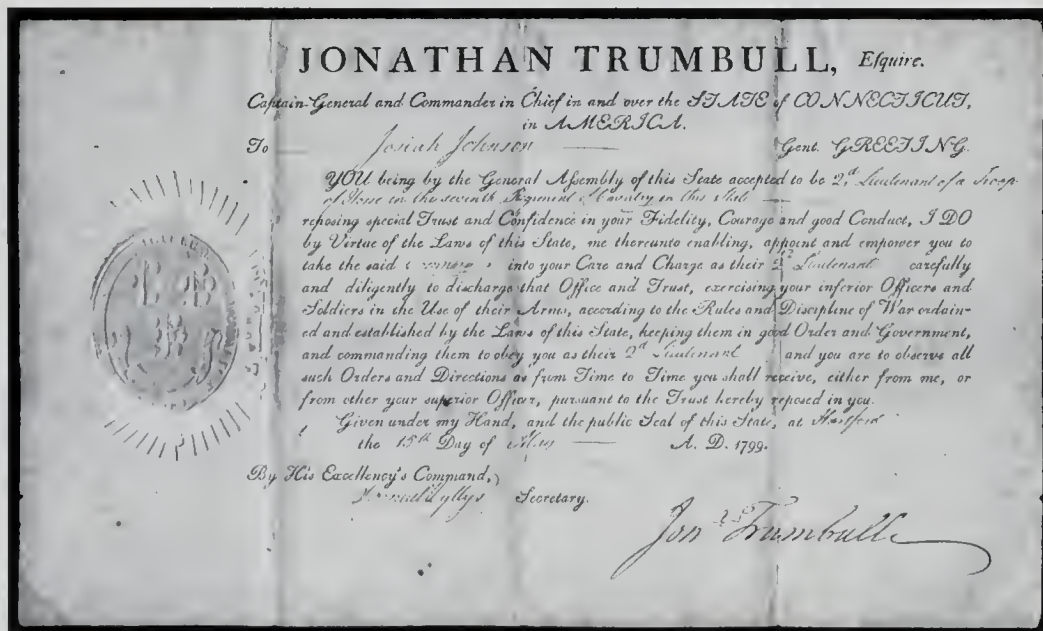 JONATHAN TRUMBULL, Eſquire.
Captain-General and Commander in Chief in and over the STATE of CONNECTICUT,
in AMERICA.
To Josiah Johnson Gent. GREETING.
YOU being by the General Aſſembly of this State accepted to be 2d. Lieutenant of a Troop
of Horse in the seventh Regiment of Cavalry in this State
reposing special Trust and Confidence in your Fidelity, Courage and good Conduct, I DO
by Virtue of the Laws of this State, me thereunto enabling, appoint and empower you to
take the said into your Care and Charge as their 2d. Lieutenant carefully
and diligently to discharge that Office and Trust, exercising your inferior Officers and
Soldiers in the Use of their Arms, according to the Rules and Discipline of War ordain-
ed and established by the Laws of this State, keeping them in good Order and Government,
and commanding them to obey you as their 2d Lieutenant, and you are to observe all
such Orders and Directions as from Time to Time you shall receive, either from me, or
from other your superior Officer, pursuant to the Trust hereby reposed in you.
Given under my Hand, and the public Seal of this State, at Hartford
the 15th Day of May A. D. 1799.
By His Excellency's Command,
Samuel Wyllys Secretary.
Jonth Trumbull